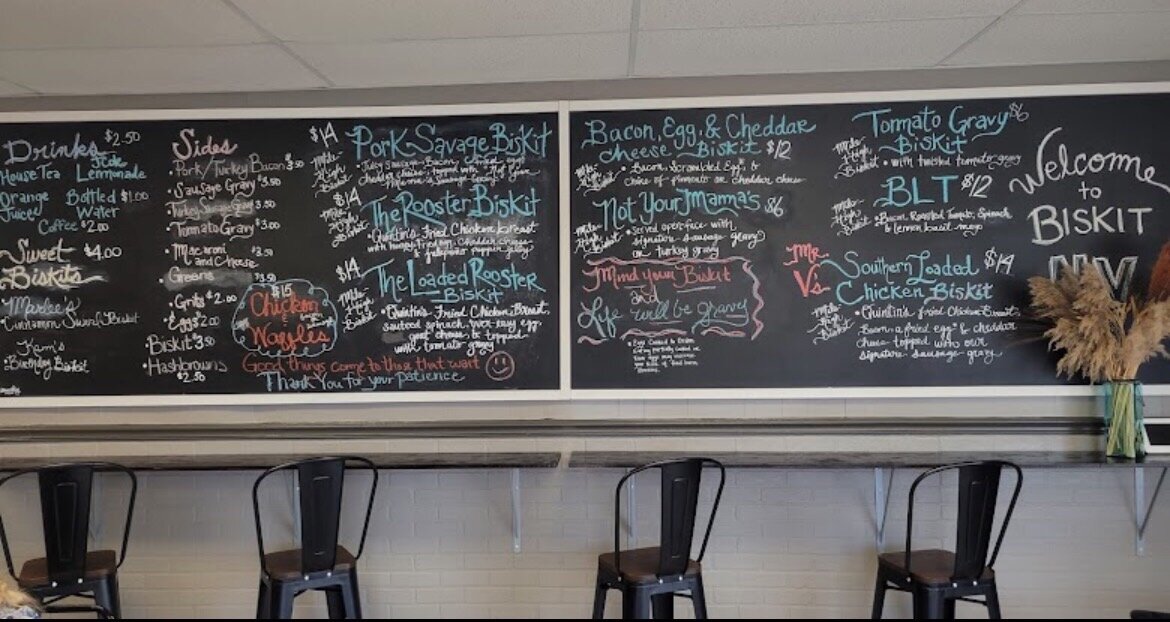 Drinks $2.50
House Tea Lemonade
Orange Juice Bottled Water $1.00
Coffee $2.00
Sweet Biskits $4.00
Cinnamon Biskit
Birthday Biskit
Sides
• Pork/Turkey Bacon
• Sausage Gravy $3.50
• Turkey Sausage Gravy $3.50
• Tomato Gravy $3.00
• Macaroni and Cheese
• Greens $3.50
• Grits $2.00
• Eggs $2.00
• Biskit $3.50
• Hashbrowns $2.50
$15
Chicken
Waffles
Good things come to those that wait
Thank You for your Patience
$14 Pork Savage Biskit
Mile High Biskit
• Juicy Sausage, Bacon, fried egg,
cheddar cheese, topped with
$14
The Rooster Biskit
Mile High Biskit
• Quintin's Fried Chicken breast
with honey, cheddar cheese
$14
The Loaded Rooster
Biskit
Mile High Biskit
• Quintin's Fried Chicken Breast,
sauteed spinach, over easy egg,
goat cheese topped
with tomato gravy
Bacon, Egg, & Cheddar
Cheese Biskit $12
Mile High Biskit
• Bacon, Scrambled Egg, &
cheddar cheese
Not Your Mama's $6
Mile High Biskit
• Served open-face with
signature sausage gravy
or turkey gravy
Mind your Biskit
and
Life will be gravy
Tomato Gravy $6
Biskit
Mile High Biskit
• with tomato gravy
BLT $12
Mile High Biskit
• Bacon, Roasted Tomato, Spinach
& lemon basil mayo
Mr. V's
Southern Loaded $14
Chicken Biskit
Mile High Biskit
• Quintin's Fried Chicken Breast,
Bacon, a fried egg & cheddar
cheese topped with our
signature sausage gravy
Welcome
to
BISKIT